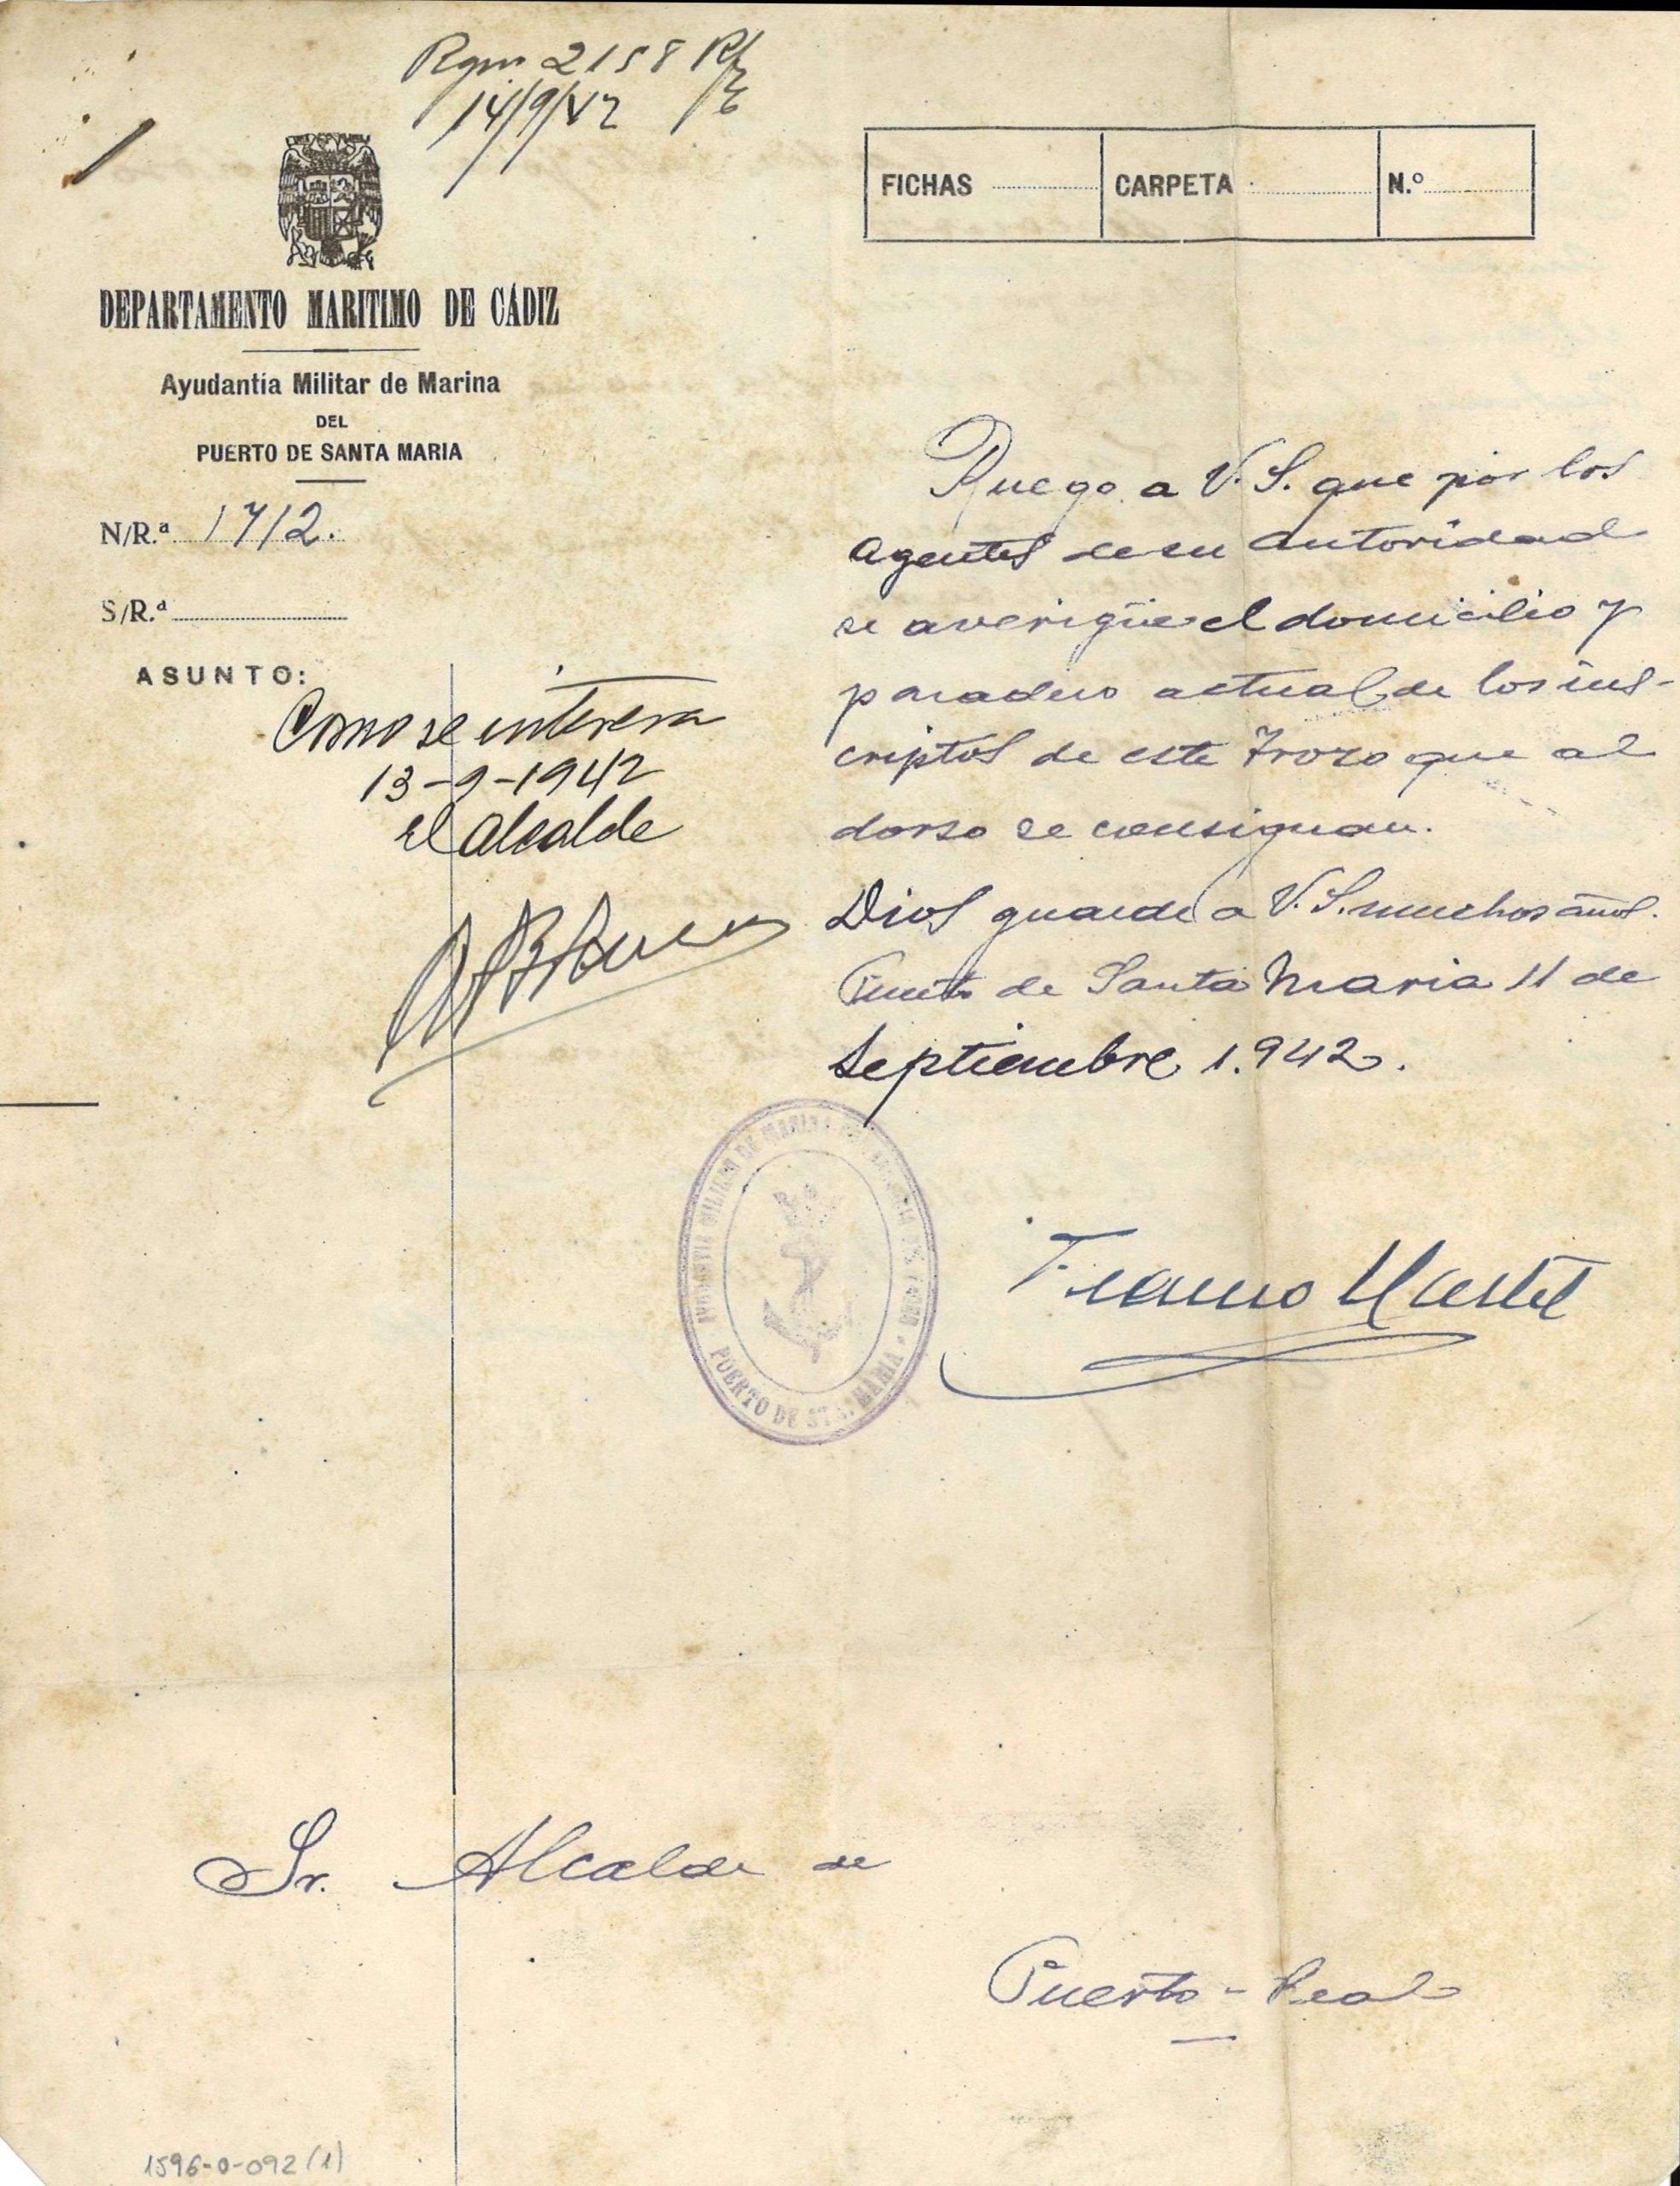 Rgm 2158
14/9/42
FICHAS CARPETA N.º
DEPARTAMENTO MARITIMO DE CÁDIZ
Ayudantía Militar de Marina
DEL
PUERTO DE SANTA MARIA
N/R.ª 1712.
S/R.ª
ASUNTO:
Como se interesa
13-9-1942
el Alcalde
Ruego a V. S. que por los
agentes de su autoridad
se averigüe el domicilio y
paradero actual de los ins-
criptos de este Trozo que al
dorso se consignan.
Dios guarde a V. S. muchos años.
Puerto de Santa Maria 11 de
Septiembre 1.942.
MILITAR DE MARINA
PUERTO DE STA. MARIA
Sr. Alcalde de
Puerto-Real
1596-0-092 (1)